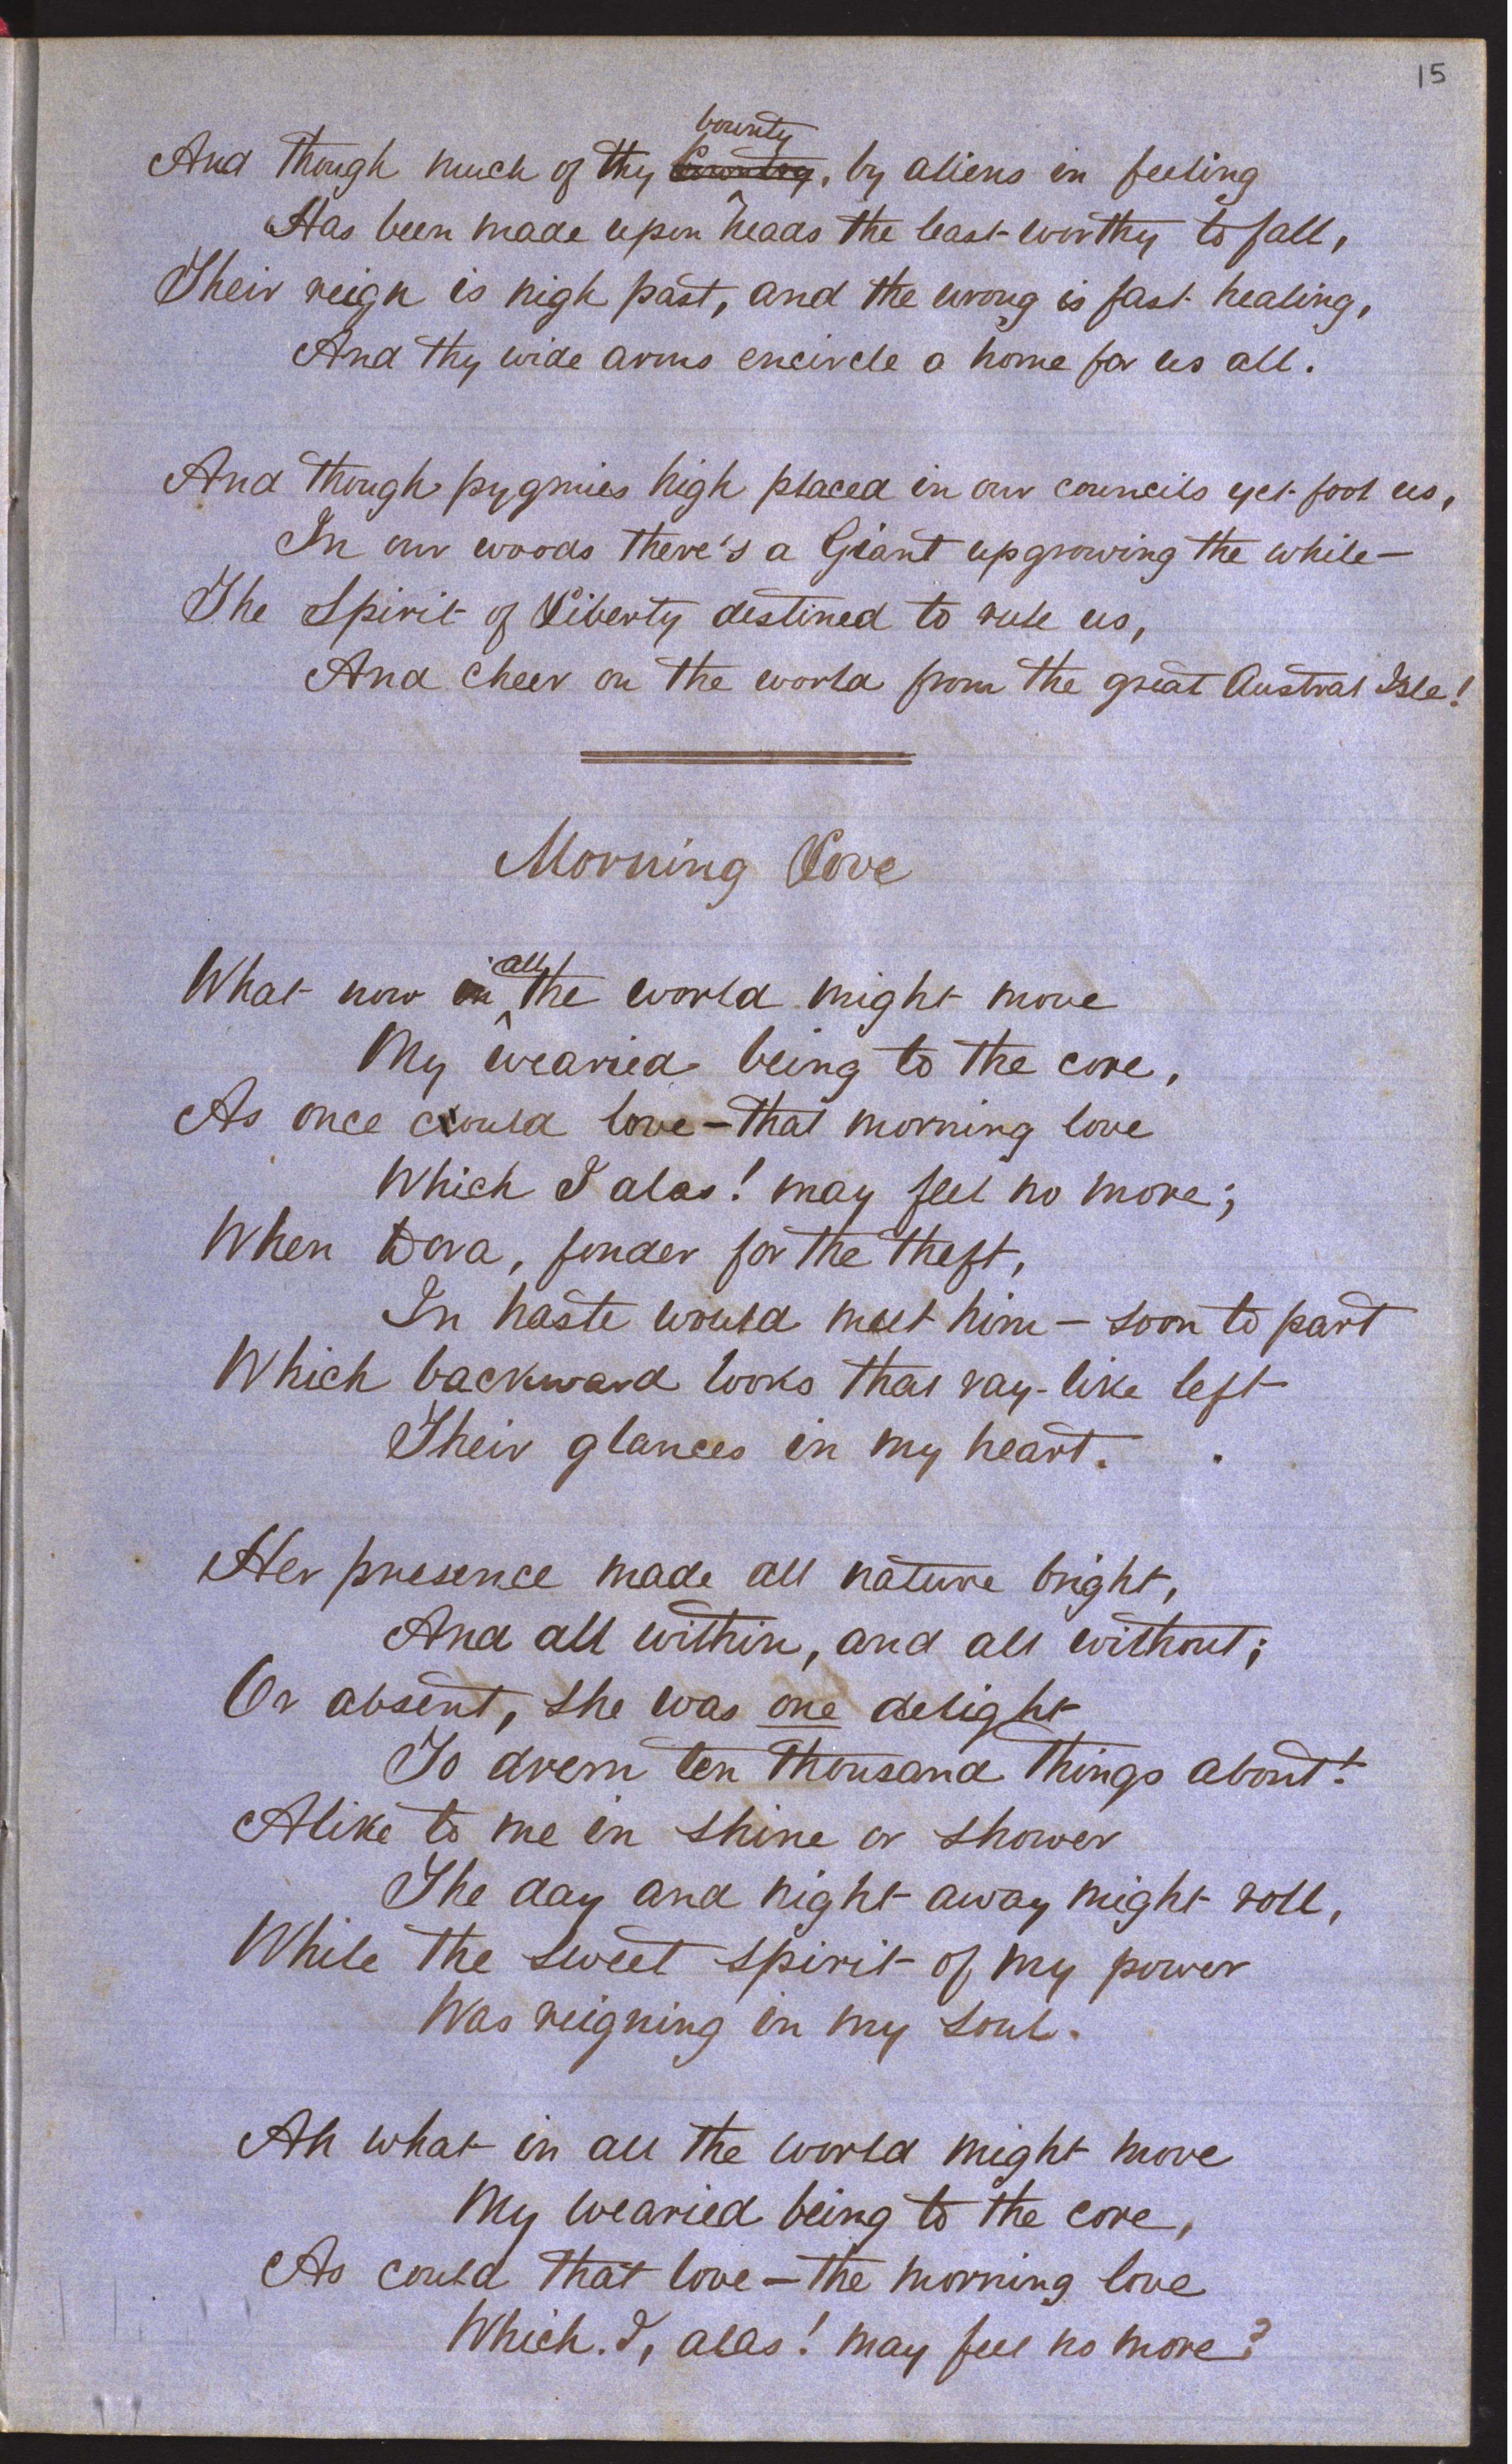 15
And though much of thy ~~Country~~ bounty, by aliens in feeling
Has been made upon heads the least worthy to fall,
Their reign is nigh past, and the wrong is fast healing,
And thy wide arms encircle a home for us all.
And though pygmies high placed in our councils yet fool us,
In our woods there's a Giant upgrowing the while—
The Spirit of Liberty destined to rule us,
And cheer on the world from the great Austral Isle!
Morning Love
What now in all the world might move
My wearied being to the core,
As once could love—that morning love
Which I alas! may feel no more;
When Dora, fonder for the theft,
In haste would meet him—soon to part
Which backward looks that ray-like left
Their glances in my heart.
Her presence made all nature bright,
And all within, and all without;
Or absent, she was one delight
To drem ten thousand things about!
Alike to me in shine or shower
The day and night away might roll,
While the sweet spirit of my power
Was reigning in my soul.
Ah what in all the world might move
My wearied being to the core,
As could that love—the morning love
Which I, alas! may feel no more?